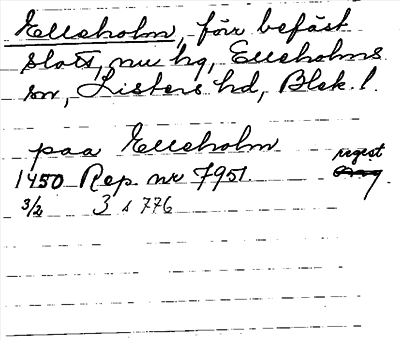 Elleholm, förr befäst
slott, nu hg, Elleholms
sn, Listers hd, Blek. l.
paa Elleholm
1450 Rep. nr 7951. regest
3/2 3 s 776